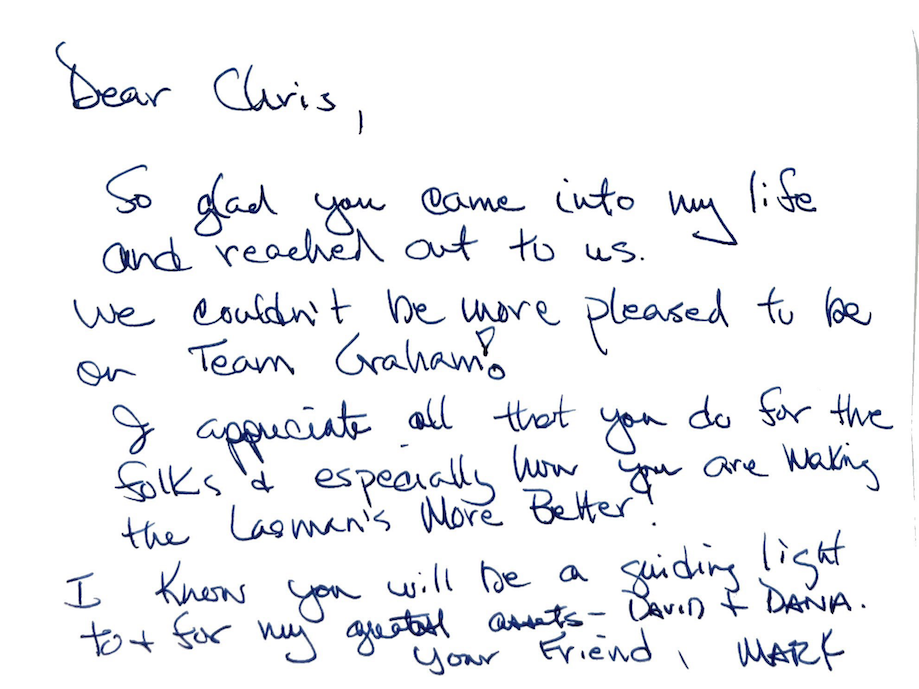 Dear Chris,
So glad you came into my life
and reached out to us.
We couldn't be more pleased to be
on Team Graham!
I appreciate all that you do for the
folks & especially how you are making
the Lasman's More Better!
I know you will be a guiding light
to + for my greatest assets - DAVID + DANA.
Your Friend, MARK